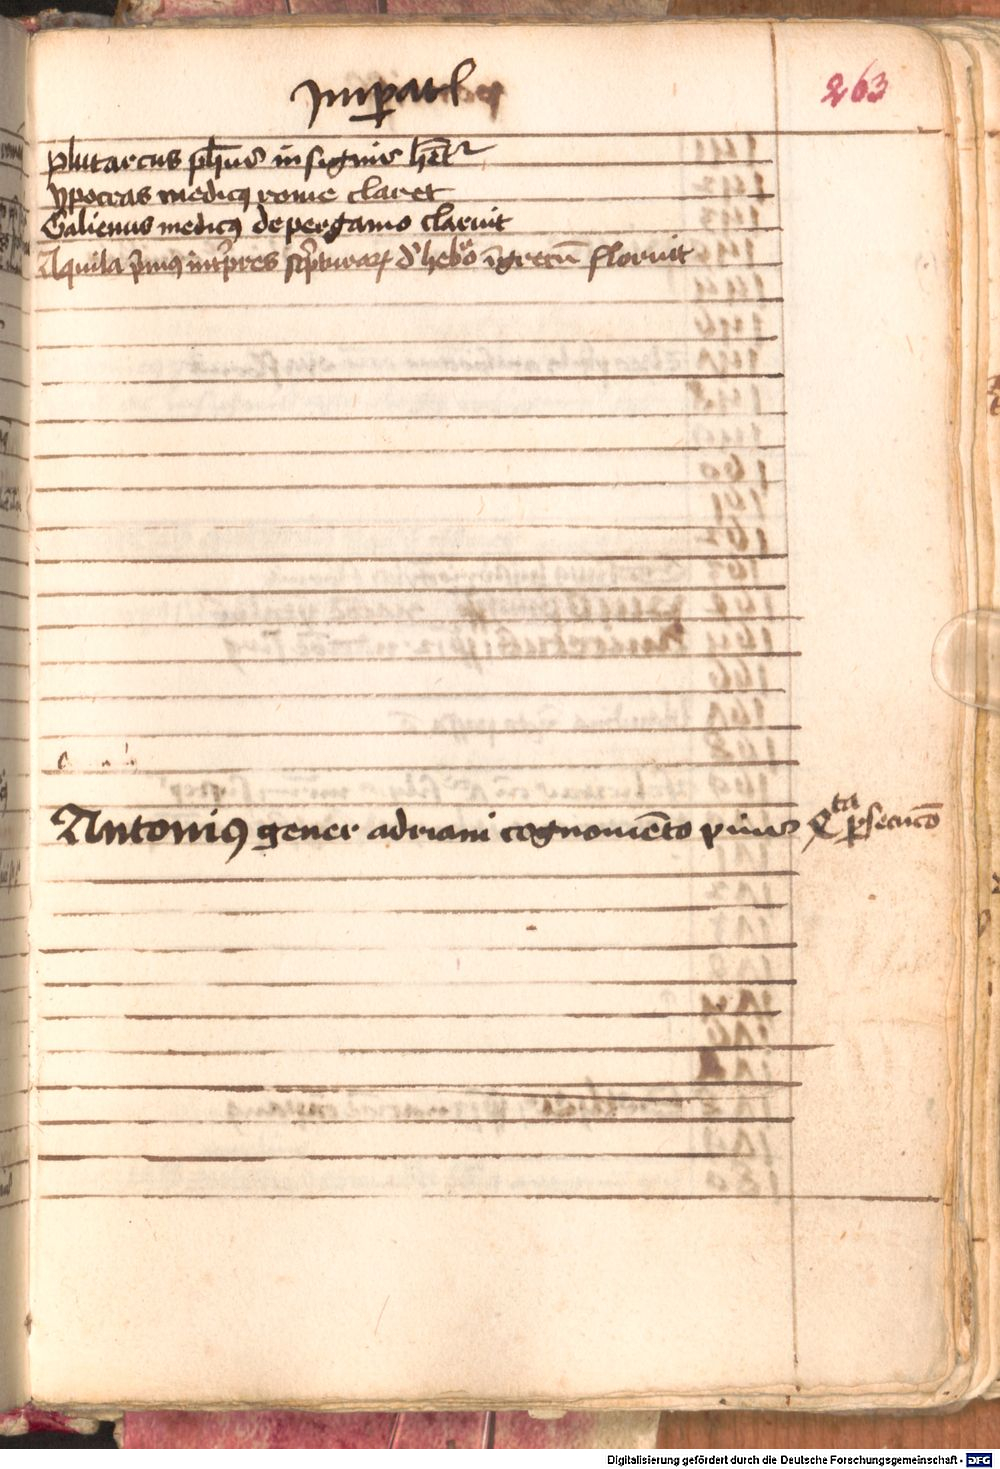 Imperatores
263
plutarcus ph̄us insignis h̄etr
ypocras medicꝯ rome claret
Galienus medicꝯ de pergamo claruit
Aquila p̄mꝯ int̄pres sc̄pturarꝝ d' heb̄o ī grecū floruit
Antoniꝯ gener adriani cognomēto pius 4ta p̄secucō
Digitalisierung gefördert durch die Deutsche Forschungsgemeinschaft - DFG